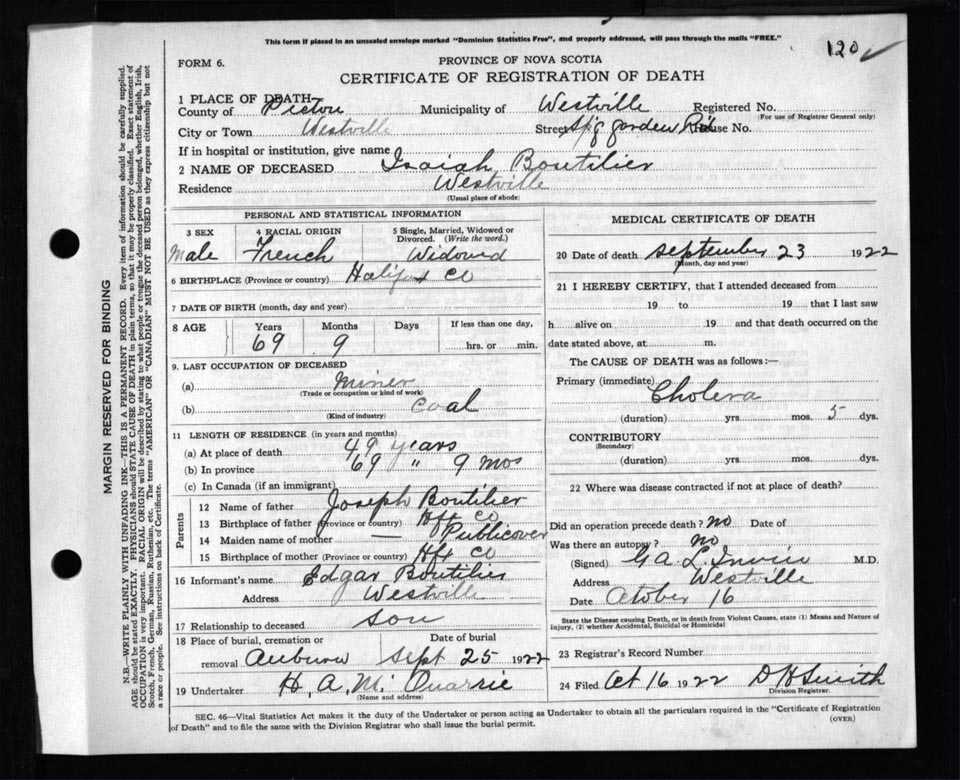 This form if placed in an unsealed envelope marked "Dominion Statistics Free", and properly addressed, will pass through the mails "FREE."
120 ✓
FORM 6.
PROVINCE OF NOVA SCOTIA
CERTIFICATE OF REGISTRATION OF DEATH
1 PLACE OF DEATH
County of Pictou Municipality of Westville Registered No.
(For use of Registrar General only)
City or Town Westville Street Sp'g garden Rd House No.
If in hospital or institution, give name
2 NAME OF DECEASED Isaiah Boutilier
Residence Westville
(Usual place of abode)
PERSONAL AND STATISTICAL INFORMATION
3 SEX 4 RACIAL ORIGIN 5 Single, Married, Widowed or Divorced. (Write the word.)
Male French Widowed
6 BIRTHPLACE (Province or country) Halifax Co
7 DATE OF BIRTH (month, day and year)
8 AGE Years Months Days If less than one day,
69 9 hrs. or min.
9. LAST OCCUPATION OF DECEASED
(a) Miner
(Trade or occupation or kind of work)
(b) Coal
(Kind of industry)
11 LENGTH OF RESIDENCE (in years and months)
(a) At place of death 49 years
(b) In province 69 " 9 mos
(c) In Canada (if an immigrant)
Parents
12 Name of father Joseph Boutilier
13 Birthplace of father (Province or country) Hfx Co
14 Maiden name of mother — Publicover
15 Birthplace of mother (Province or country) Hfx Co
16 Informant's name Edgar Boutilier
Address Westville
17 Relationship to deceased Son
18 Place of burial, cremation or Date of burial
removal Auburn Sept 25 1922
19 Undertaker H. A. McQuarrie
(Name and address)
MEDICAL CERTIFICATE OF DEATH
20 Date of death September 23 1922
(Month, day and year)
21 I HEREBY CERTIFY, that I attended deceased from
19 to 19 that I last saw
h alive on ,19 and that death occurred on the
date stated above, at m.
The CAUSE OF DEATH was as follows:—
Primary (immediate) Cholera
(duration) yrs. mos. 5 dys.
CONTRIBUTORY
(Secondary)
(duration) yrs. mos. dys.
22 Where was disease contracted if not at place of death?
Did an operation precede death? no Date of
Was there an autopsy? no
(Signed) M.D.
Address Westville
Date October 16
State the Disease causing Death, or in death from Violent Causes, state (1) Means and Nature of
injury, (2) whether Accidental, Suicidal or Homicidal
23 Registrar's Record Number
24 Filed Oct 16 1922 D H Smith
Division Registrar.
SEC. 46—Vital Statistics Act makes it the duty of the Undertaker or person acting as Undertaker to obtain all the particulars required in the "Certificate of Registration
of Death" and to file the same with the Division Registrar who shall issue the burial permit.
(OVER)
MARGIN RESERVED FOR BINDING
N.B.—WRITE PLAINLY WITH UNFADING INK—THIS IS A PERMANENT RECORD. Every item of information should be carefully supplied.
AGE should be stated EXACTLY. PHYSICIANS should STATE CAUSE OF DEATH in plain terms, so that it may be properly classified. Exact statement of
OCCUPATION is very important. RACIAL ORIGIN will be described by stating to what people or tongue the deceased person belonged, whether English, Irish,
Scotch, French, German, Russian, Ruthenian, etc. The terms "AMERICAN" OR "CANADIAN" MUST NOT BE USED as they express citizenship but not
a race or people. See instructions on back of Certificate.